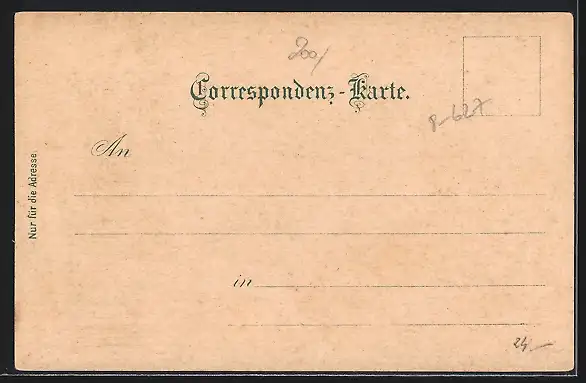 200/
Correspondenz-Karte.
P-627
An
Nur für die Adresse
in
24,—